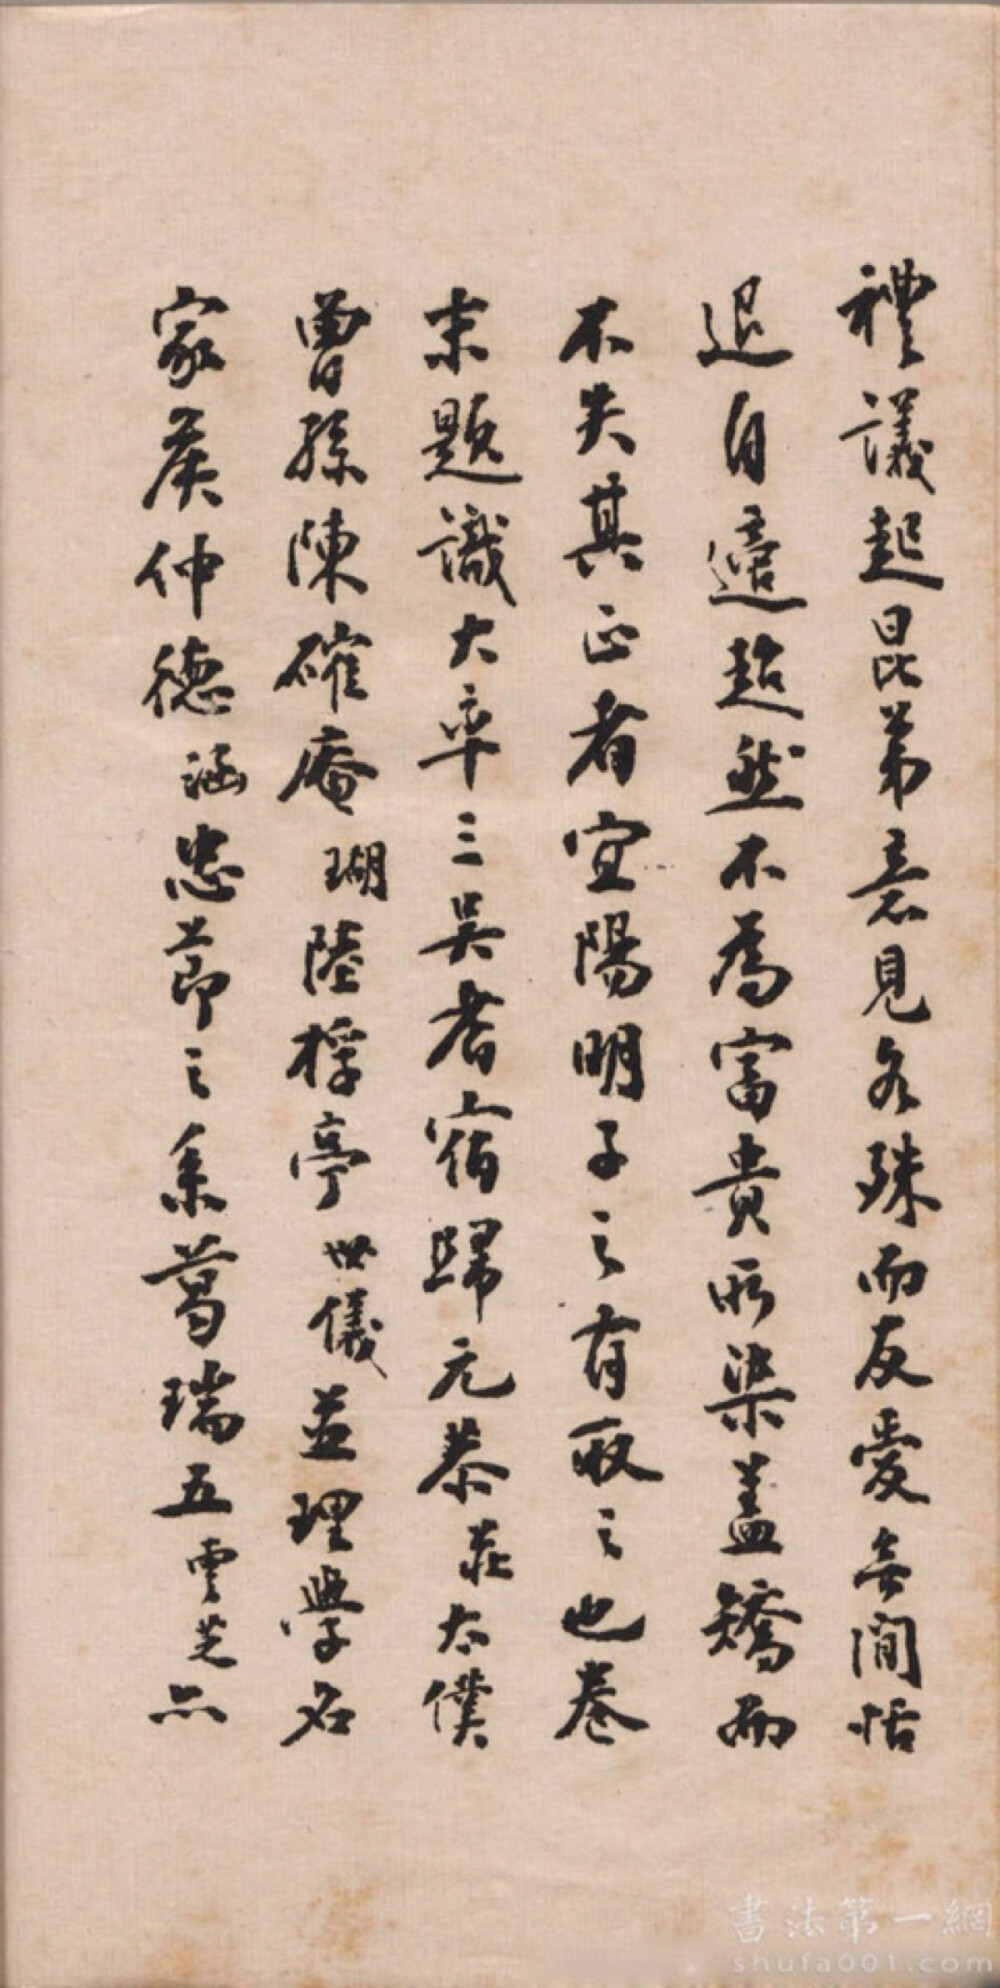 禮議起昆弟意見各殊而友愛無間恬
退自適超然不為富貴所染蓋矯而
不失其正者宜陽明子之有取之也卷
末題識大率三吳耆宿歸元恭莊太僕
曾孫陳確庵瑚陸桴亭世儀並理學名
家侯仲德涵忠節之系葛瑞五雲芝亦
書法第一網
shufa001.com